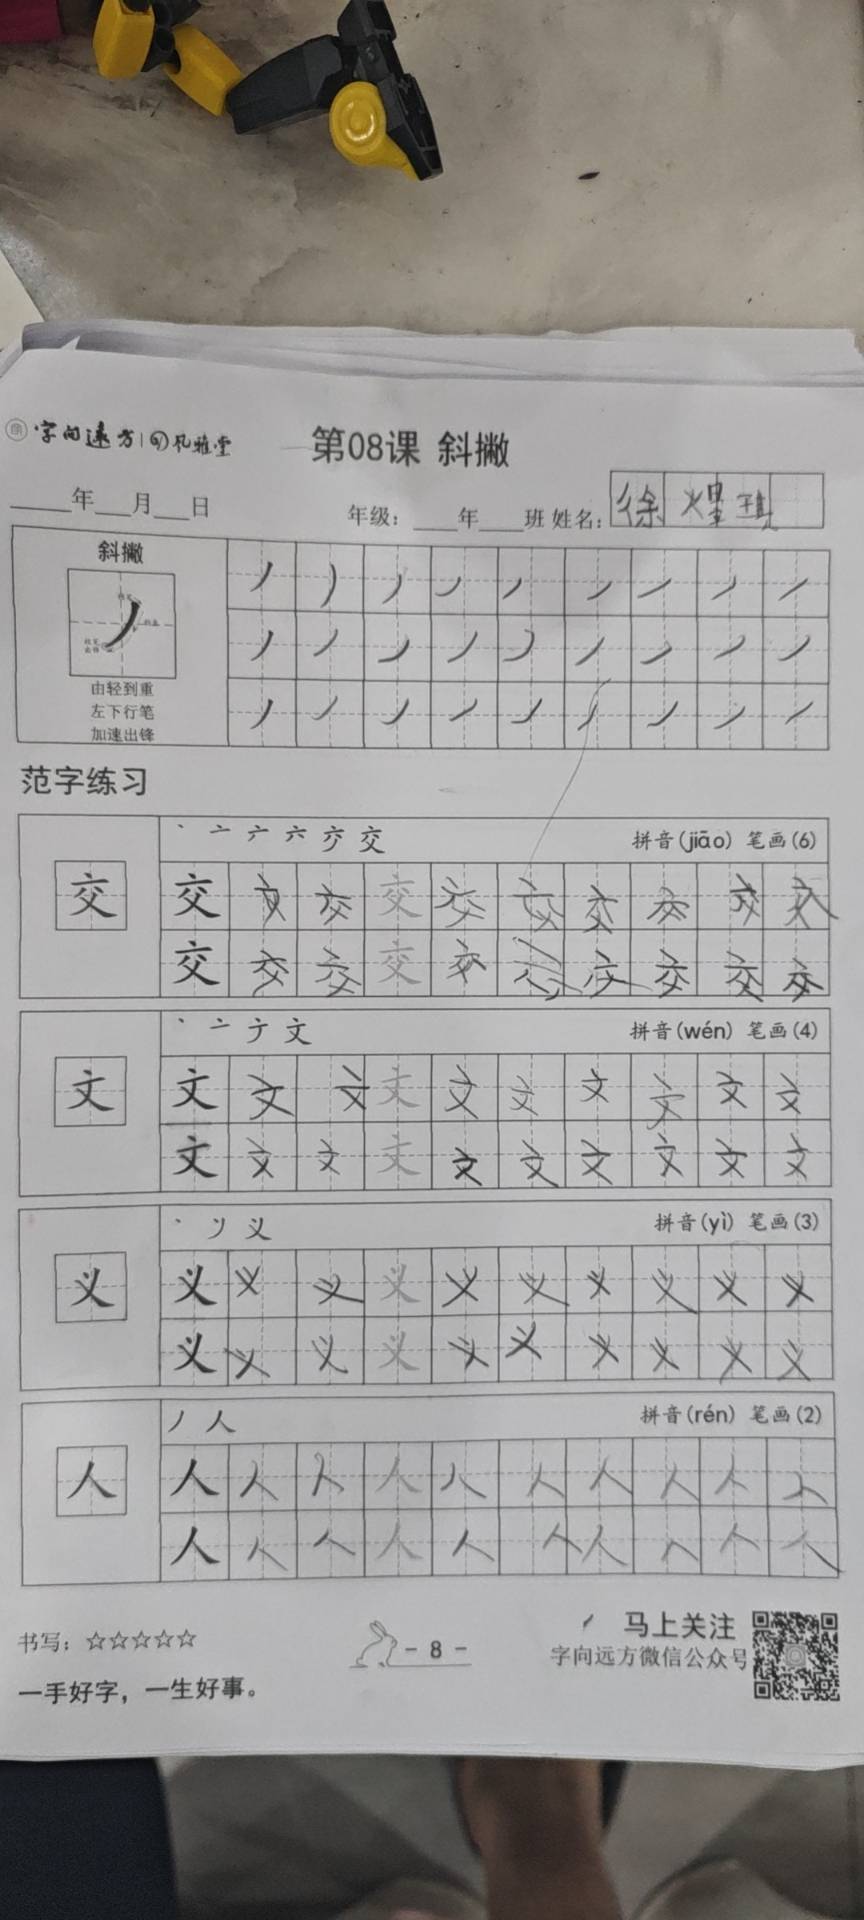 字向远方 | 孔雅堂
第08课 斜撇
____年___月___日 年级：____年____班 姓名：徐煌琪
斜撇
由轻到重
左下行笔
加速出锋
范字练习
丶 亠 亠 六 亣 交 拼音(jiāo) 笔画(6)
交 交 交 交 交 交 交 交 交 交 交
交 交 交 交 交 交 交 交 交 交
丶 亠 ナ 文 拼音(wén) 笔画(4)
文 文 文 文 文 文 文 文 文 文 文
文 文 文 文 文 文 文 文 文 文
丶 丷 义 拼音(yì) 笔画(3)
义 义 义 义 义 义 义 义 义 义 义
义 义 义 义 义 义 义 义 义 义
丿 人 拼音(rén) 笔画(2)
人 人 人 人 人 人 人 人 人 人 人
人 人 人 人 人 人 人 人 人 人
书写：☆☆☆☆☆
一手好字，一生好事。
- 8 -
马上关注
字向远方微信公众号